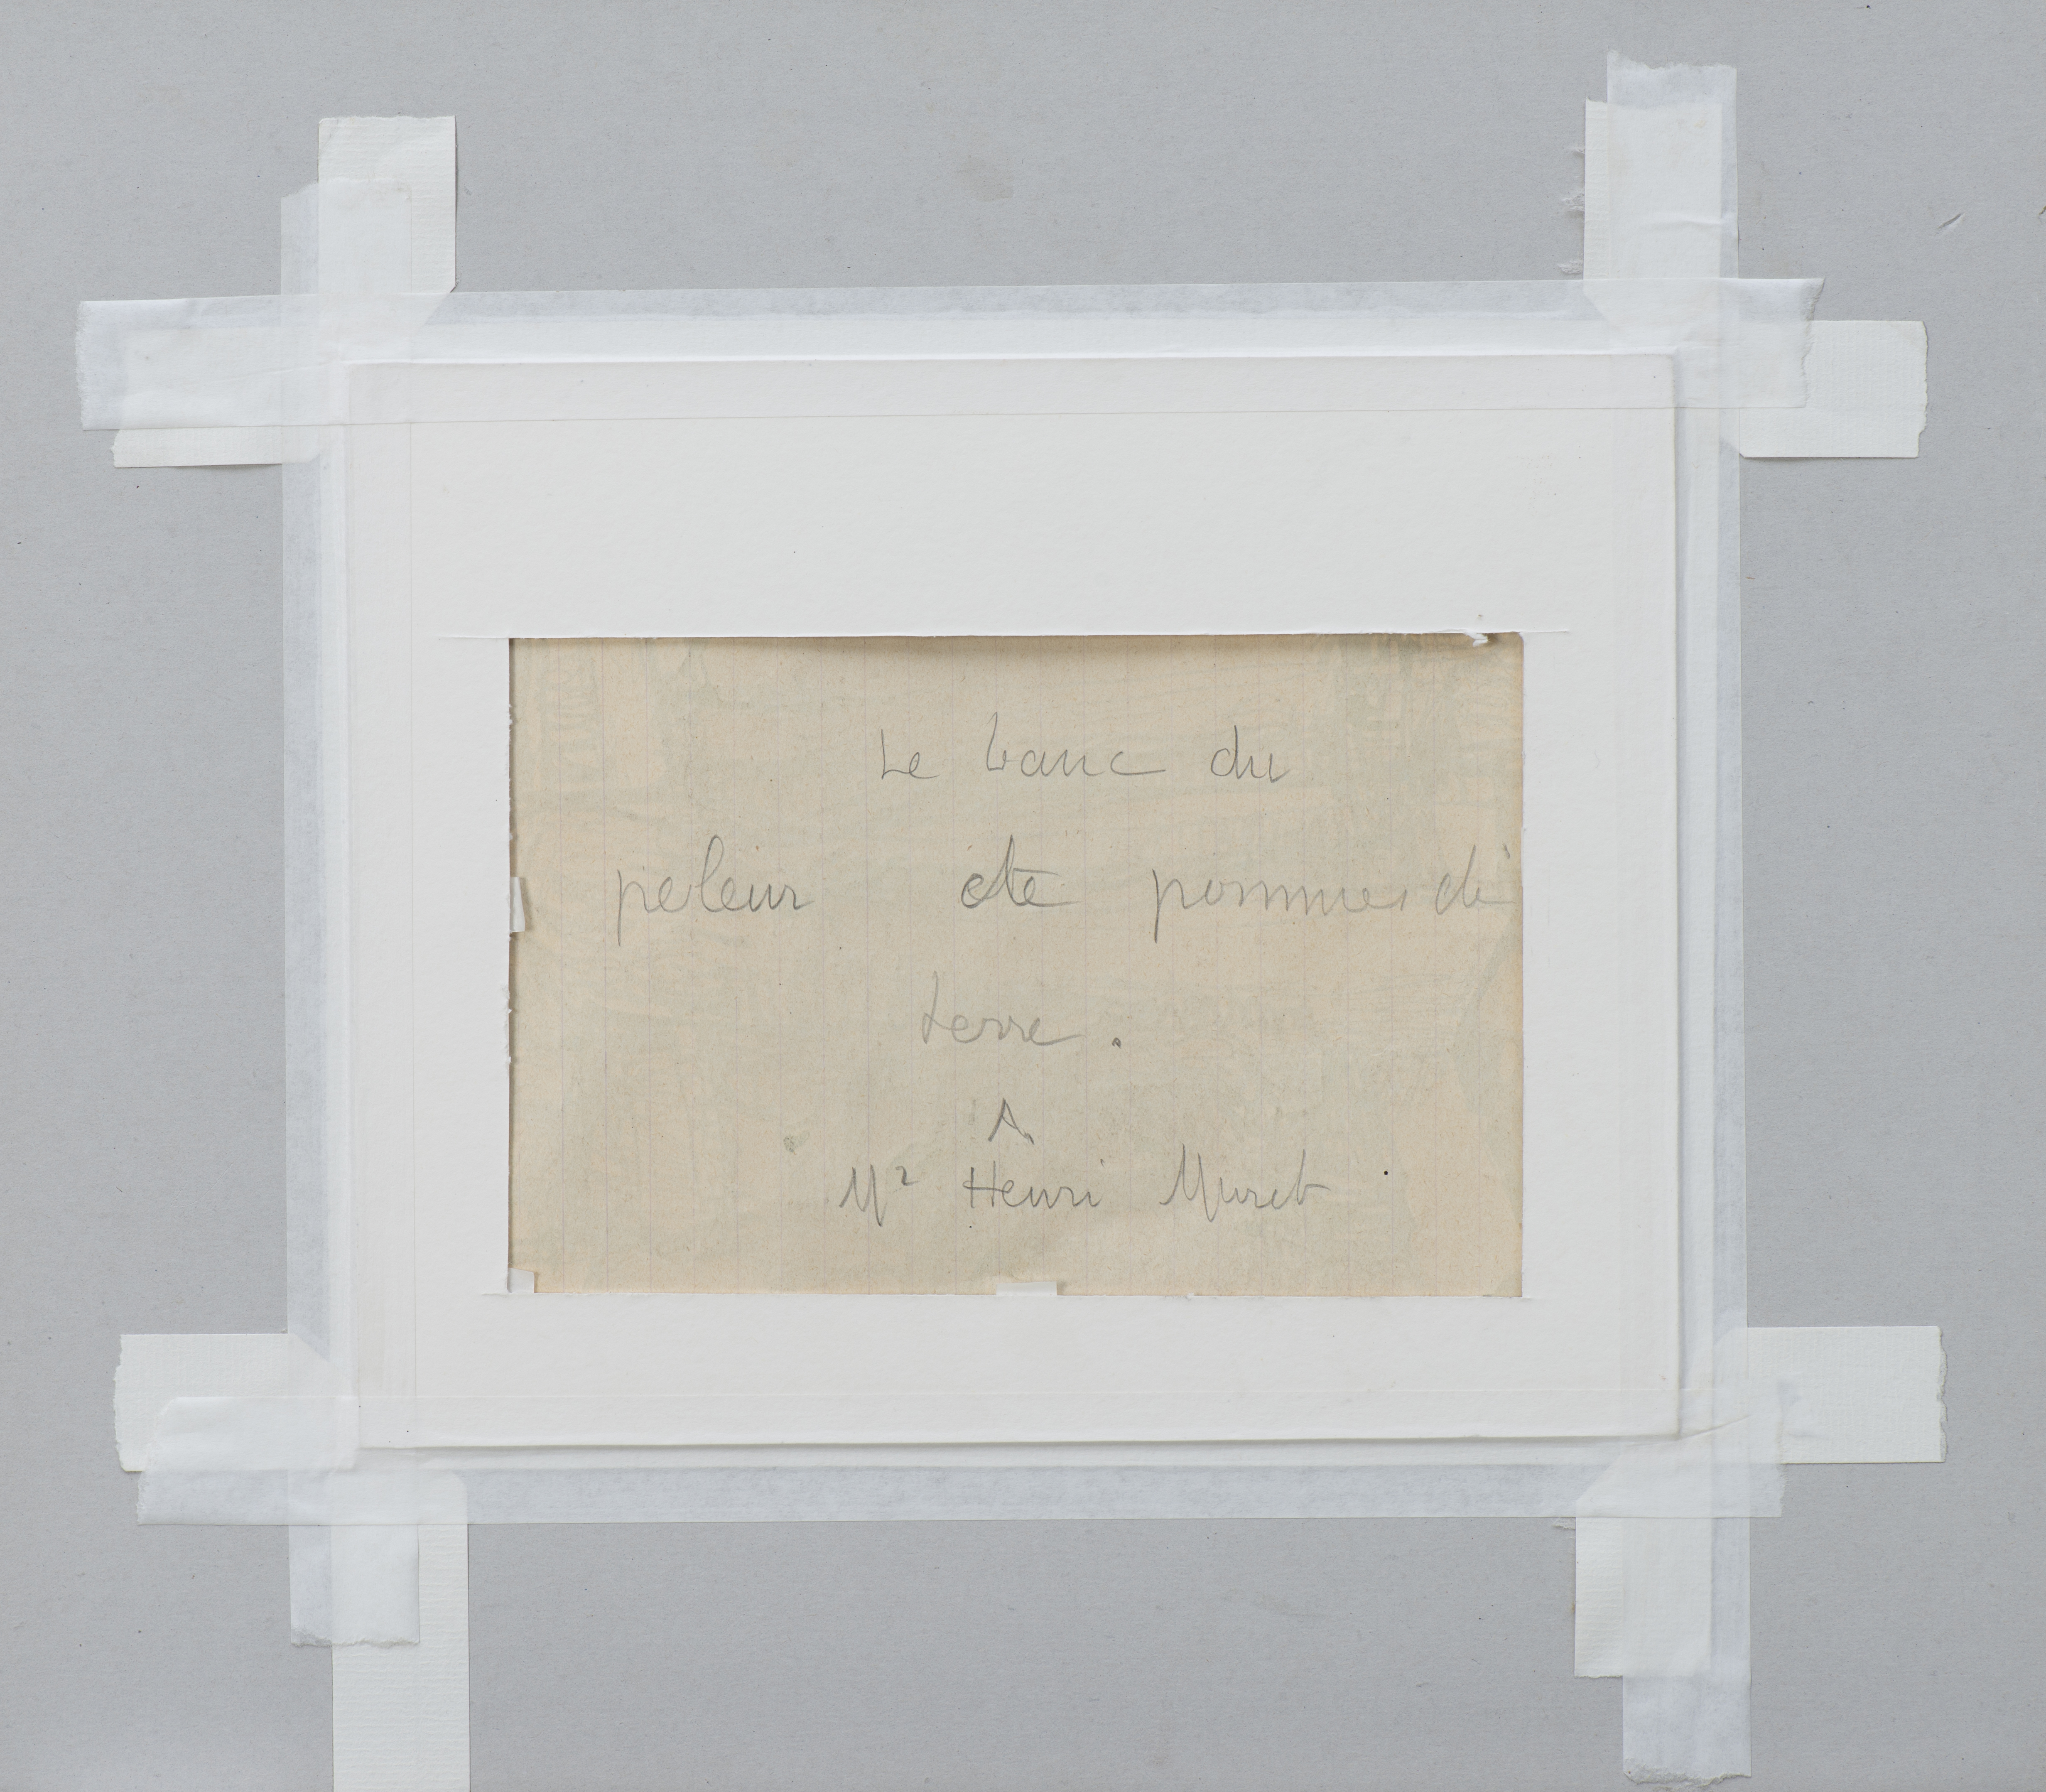 Le banc du
peleur de pommes de
terre.
A
Mr Henri Muret